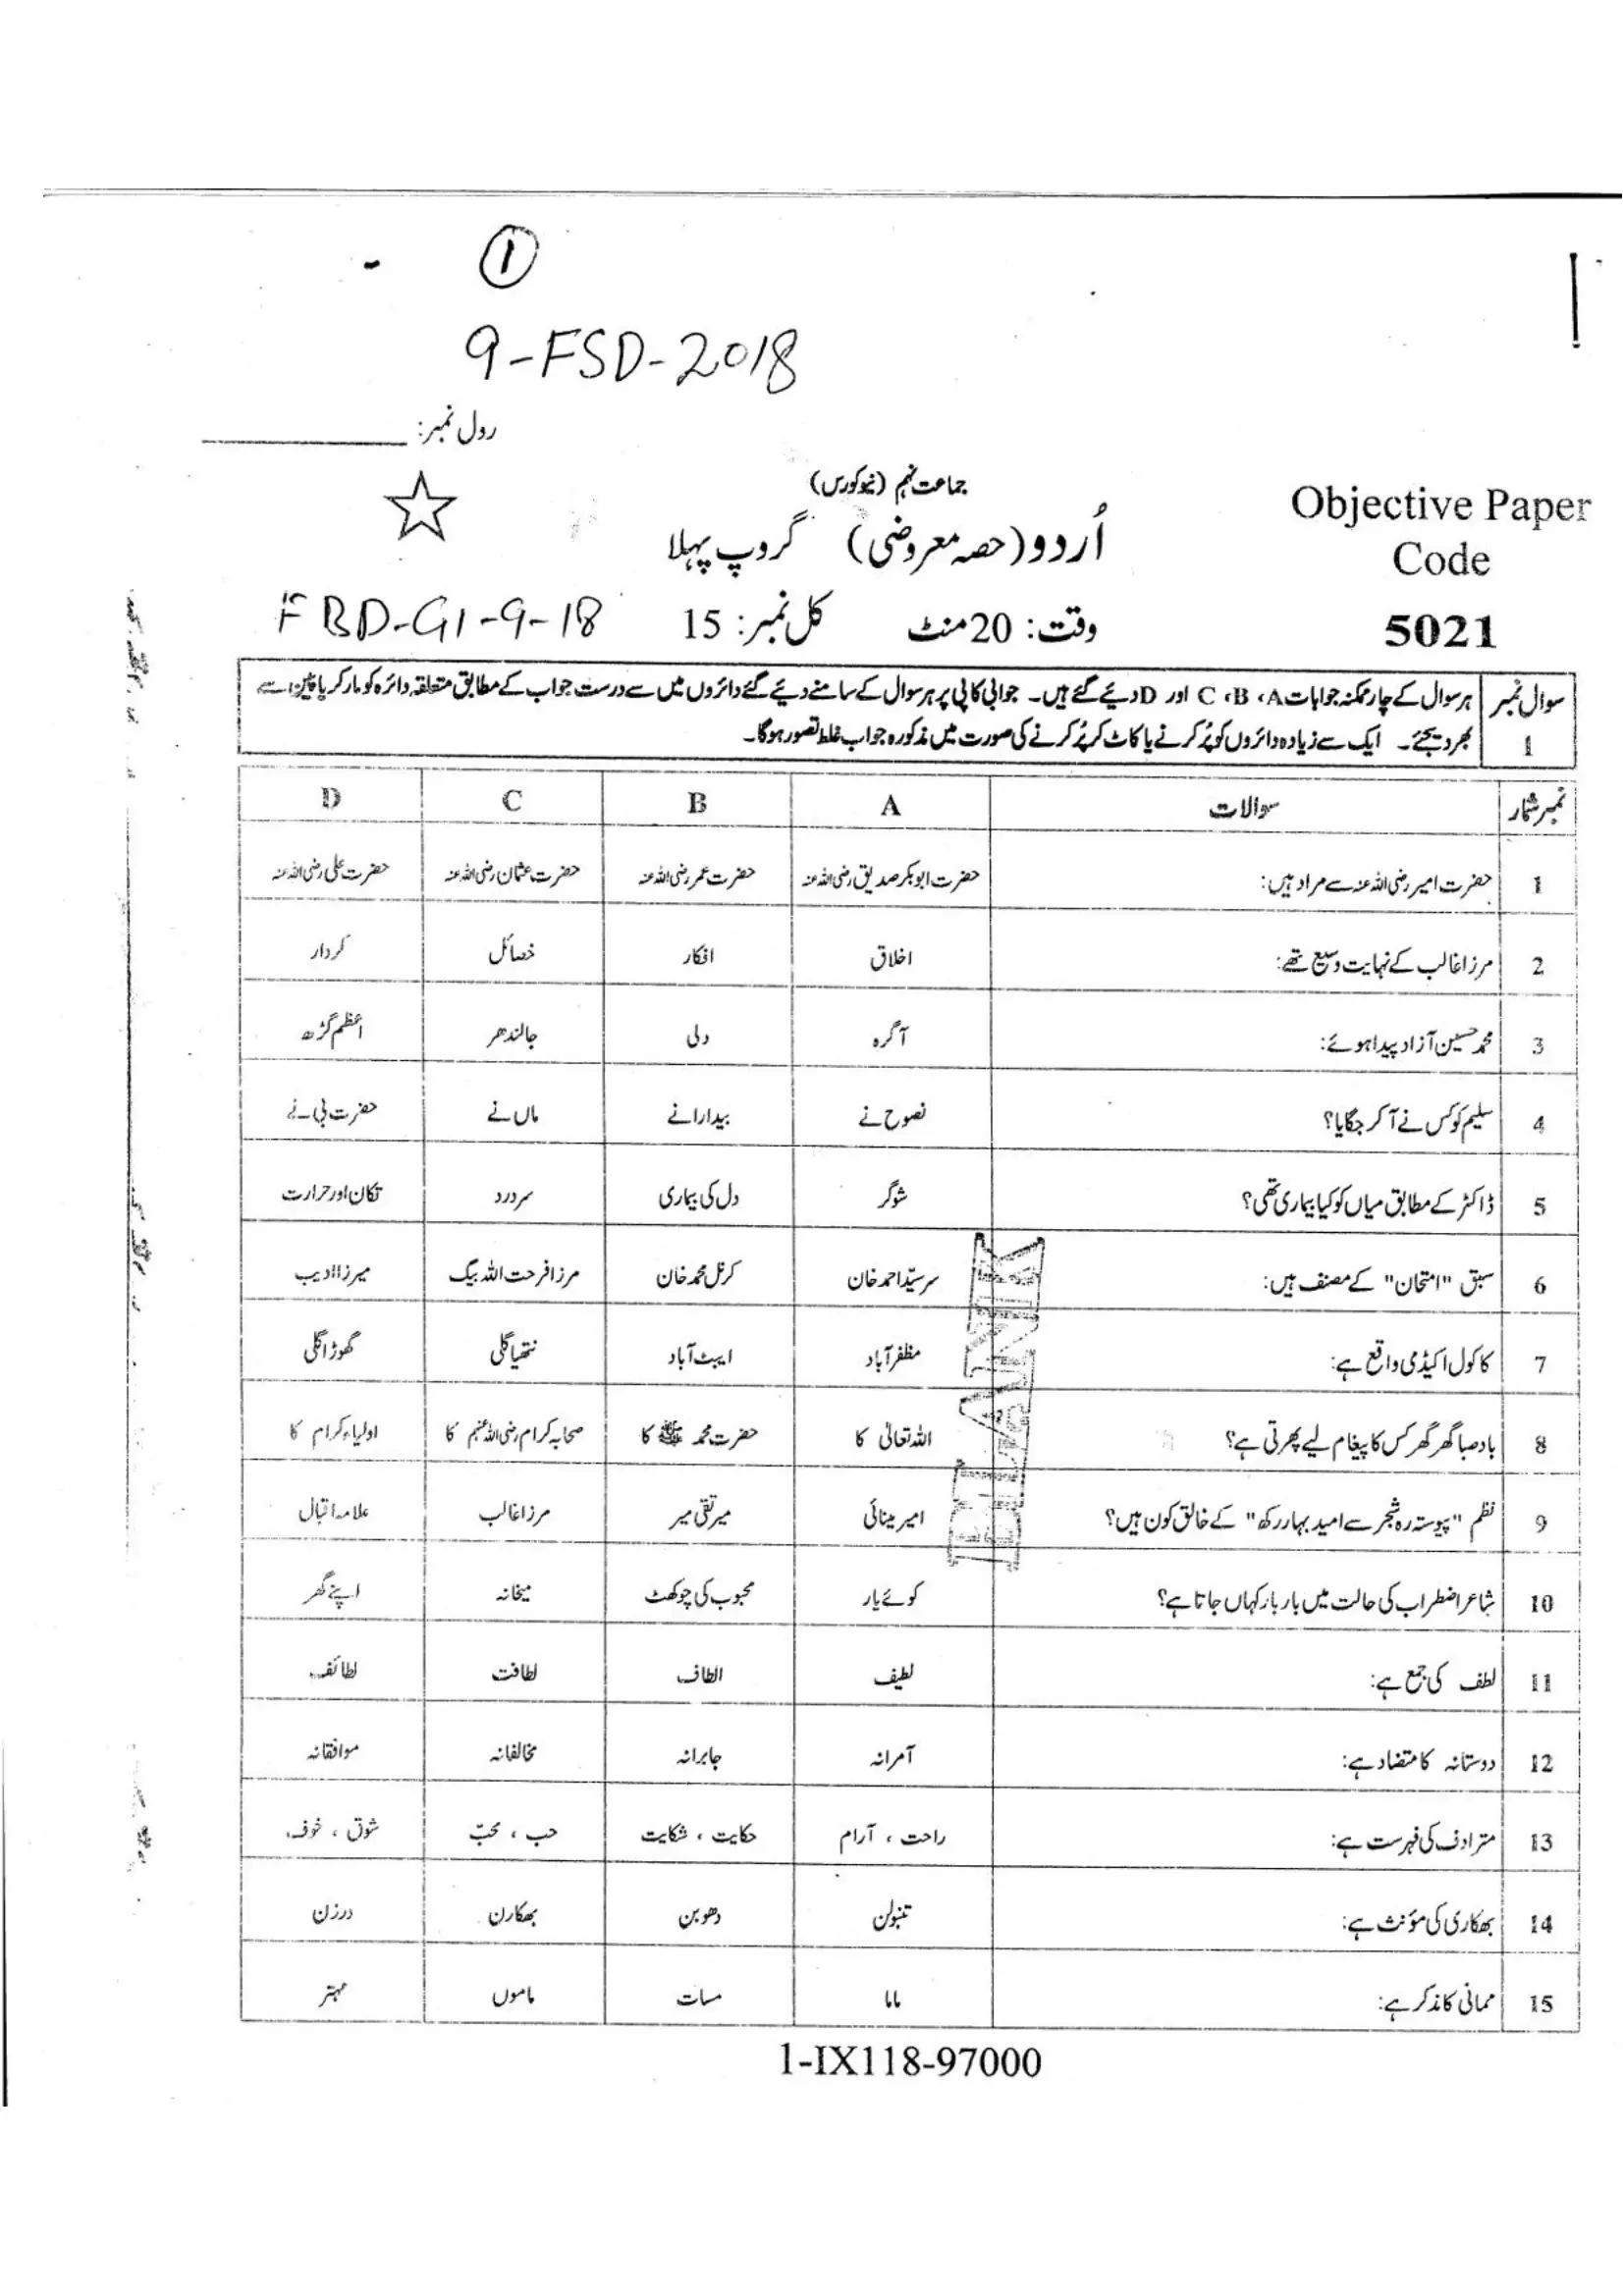 1
9-FSD-2018
رول نمبر: ____________
جماعت نہم (نیو کورس)
Objective Paper
اُردو (حصہ معروضی) گروپ پہلا
Code
وقت: 20 منٹ کل نمبر: 15 FBD-G1-9-18
5021
سوال نمبر 1
ہر سوال کے چار ممکنہ جوابات A، B، C اور D دیئے گئے ہیں۔ جوابی کاپی پر ہر سوال کے سامنے دیئے گئے دائروں میں سے درست جواب کے مطابق متعلقہ دائرہ کو مارکر یا پین سے
بھر دیجئے۔ ایک سے زیادہ دائروں کو پُر کرنے یا کاٹ کر پُر کرنے کی صورت میں مذکورہ جواب غلط تصور ہوگا۔
نمبر شمار سوالات A B C D
1 حضرت امیر رضی اللہ عنہ سے مراد ہیں: حضرت ابو بکر صدیق رضی اللہ عنہ حضرت عمر رضی اللہ عنہ حضرت عثمان رضی اللہ عنہ حضرت علی رضی اللہ عنہ
2 مرزا غالب کے نہایت وسیع تھے: اخلاق افکار خصائل کردار
3 محمد حسین آزاد پیدا ہوئے: آگرہ دلی جالندھر اعظم گڑھ
4 سلیم کو کس نے آ کر جگایا؟ نصوح نے بیدارا نے ماں نے حضرت بی نے
5 ڈاکٹر کے مطابق میاں کو کیا بیماری تھی؟ شوگر دل کی بیماری سر درد تکان اور حرارت
6 سبق "امتحان" کے مصنف ہیں: سر سیّد احمد خان کرنل محمد خان مرزا فرحت اللہ بیگ میرزا ادیب
7 کاکول اکیڈمی واقع ہے: مظفر آباد ایبٹ آباد نتھیا گلی گھوڑا گلی
8 بادِ صبا گھر گھر کس کا پیغام لیے پھرتی ہے؟ اللہ تعالیٰ کا حضرت محمد ﷺ کا صحابہ کرام رضی اللہ عنہم کا اولیاء کرام کا
9 نظم "پیوستہ رہ شجر سے امید بہار رکھ" کے خالق کون ہیں؟ امیر مینائی میر تقی میر مرزا غالب علامہ اقبال
10 شاعر اضطراب کی حالت میں بار بار کہاں جاتا ہے؟ کوئے یار محبوب کی چوکھٹ میخانہ اپنے گھر
11 لطف کی جمع ہے: لطیف الطاف لطافت لطائف
12 دوستانہ کا متضاد ہے: آمرانہ جابرانہ مخالفانہ موافقانہ
13 مترادف کی فہرست ہے: راحت ، آرام حکایت ، شکایت حب ، محبّ شوق ، خوف
14 بھکاری کی مؤنث ہے: تنبولن دھوبن بھکارن درزن
15 ممانی کا مذکر ہے: ماما مسات ماموں مہتر
BLANK
1-IX118-97000